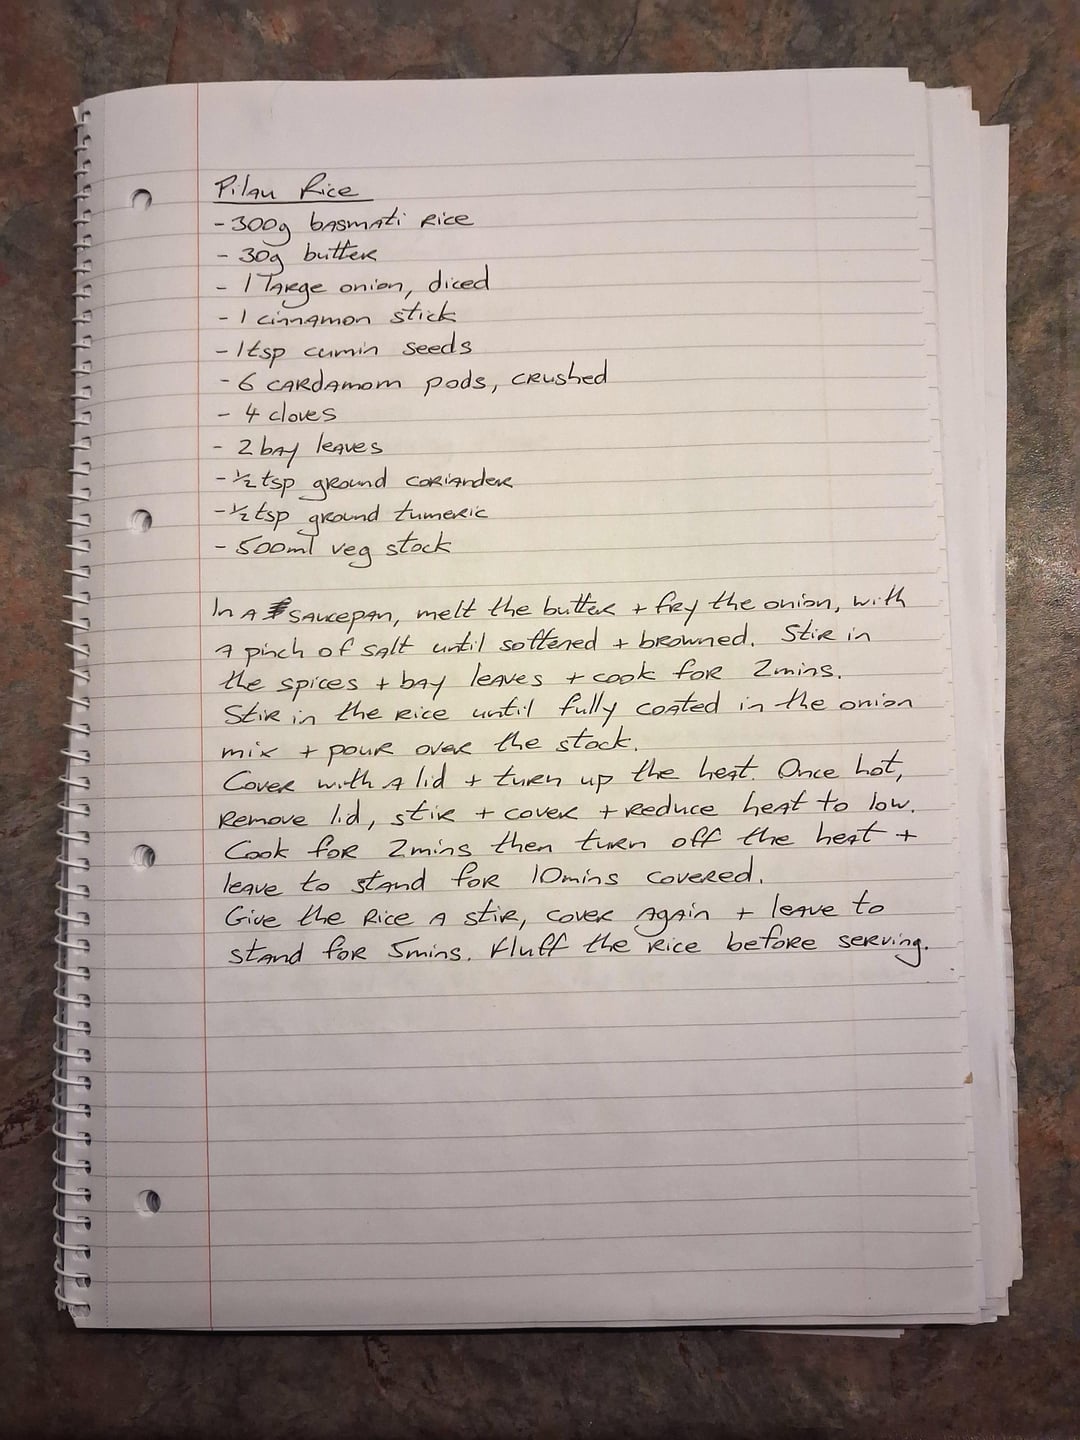 Pilau Rice
- 300g basmati rice
- 30g butter
- 1 large onion, diced
- 1 cinnamon stick
- 1tsp cumin seeds
- 6 cardamom pods, crushed
- 4 cloves
- 2 bay leaves
- ½ tsp ground coriander
- ½ tsp ground tumeric
- 500ml veg stock
In a saucepan, melt the butter + fry the onion, with
a pinch of salt until softened + browned. Stir in
the spices + bay leaves + cook for 2mins.
Stir in the rice until fully coated in the onion
mix + pour over the stock.
Cover with a lid + turn up the heat. Once hot,
remove lid, stir + cover + reduce heat to low.
Cook for 2mins then turn off the heat +
leave to stand for 10mins covered.
Give the rice a stir, cover again + leave to
stand for 5mins. Fluff the rice before serving.